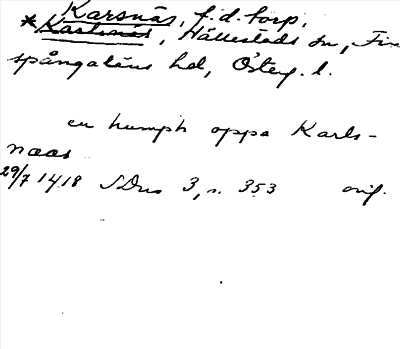 Karsnäs, f.d. torp,
*Karlsnäs, Hällestads sn, Fin
spångaläns hd, Österg. l.
en humpn oppa Karls-
naas
29/7 1418 SDns 3, s. 353 orig.